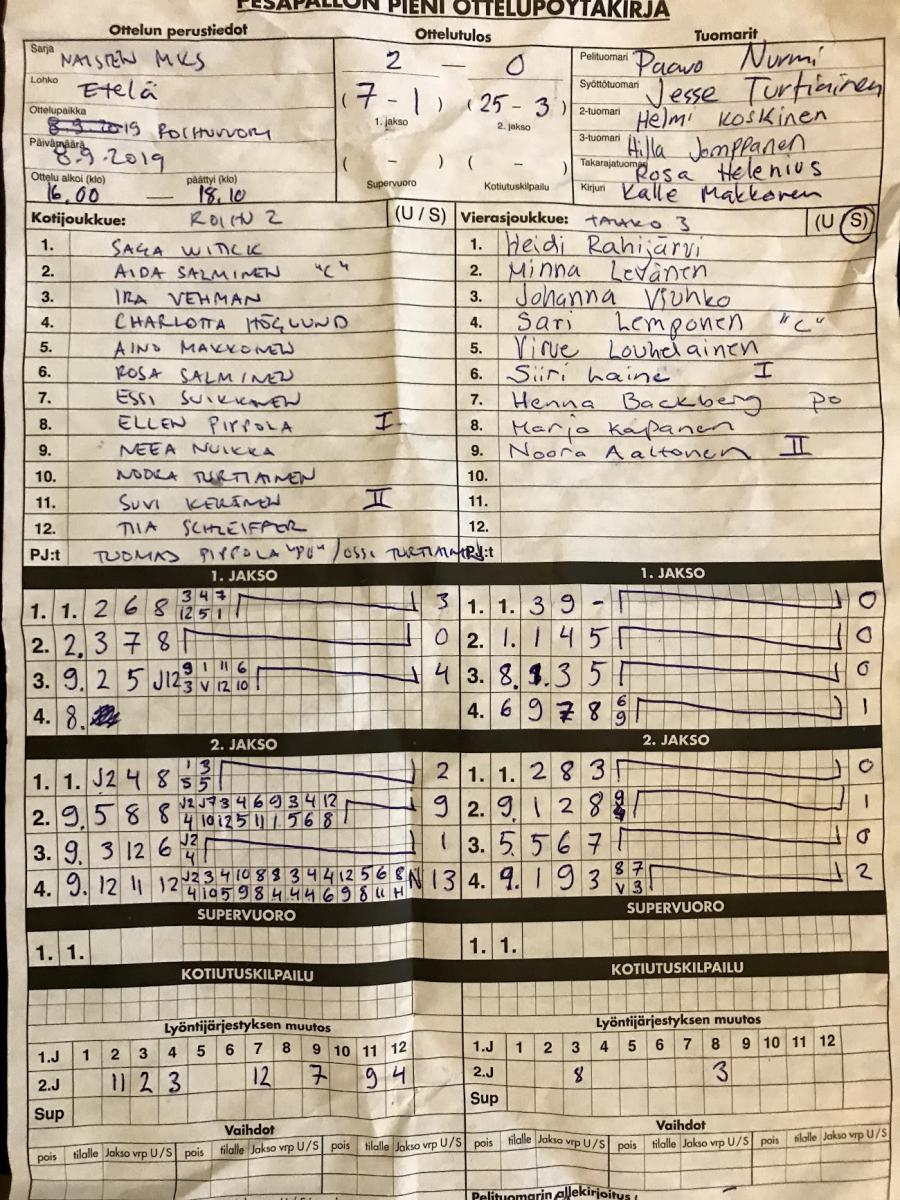 PESÄPALLON PIENI OTTELUPÖYTÄKIRJA
Ottelun perustiedot Ottelutulos Tuomarit
Sarja NAISTEN MKS
Lohko Etelä
Ottelupaikka 8.9.2019 ROIHUVUORI
Päivämäärä 8.9.2019
Ottelu alkoi (klo) päättyi (klo)
16.00 — 18.10
2 — 0
(7 - 1) (25 - 3)
1. jakso 2. jakso
( - ) ( - )
Supervuoro Kotiutuskilpailu
Pelituomari Paavo Nurmi
Syöttötuomari Jesse Turtiainen
2-tuomari Helmi Koskinen
3-tuomari Hilla Jomppanen
Takarajatuomari Rosa Helenius
Kirjuri Kalle Makkonen
Kotijoukkue: ROIHU 2 (U / S)
1. SAGA WITICK
2. AIDA SALMINEN "C"
3. IRA VEHMAN
4. CHARLOTTA HÖGLUND
5. AINO MAKKONEN
6. ROSA SALMINEN
7. ESSI SUIKKANEN
8. ELLEN PIPPOLA I
9. NEEA NUIKKA
10. NOORA TURTIAINEN
11. SUVI KERÄNEN II
12. TIIA SCHLEIFFER
PJ:t TUOMAS PIPPOLA "PU" / OSSI TURTIAINEN
Vierasjoukkue: TAHKO 3 (U / S)
1. Heidi Rahijärvi
2. Minna Levänen
3. Johanna Vjuhko
4. Sari Lemponen "C"
5. Virve Louhelainen
6. Siiri Laine I
7. Henna Backberg PO
8. Marja Kapanen
9. Noora Aaltonen II
10.
11.
12.
PJ:t
1. JAKSO
1. 1. 2 6 8 3 4 7 3
12 5 1
2. 2. 3 7 8 0
3. 9. 2 5 J12 9 1 11 6 4
3 V 12 10
4. 8.
1. JAKSO
1. 1. 3 9 - 0
2. 1. 1 4 5 0
3. 8. 1. 3 5 0
4. 6 9 7 8 6 1
9
2. JAKSO
1. 1. J2 4 8 1 3 2
5 5
2. 9. 5 8 8 J2 J7 3 4 6 9 3 4 12 9
4 10 12 5 11 1 5 6 8
3. 9. 3 12 6 J2 1
4
4. 9. 12 11 12 J2 3 4 10 8 8 3 4 4 12 5 6 8 N 13
4 10 5 9 8 4 4 4 6 9 8 11 H
2. JAKSO
1. 1. 2 8 3 0
2. 9. 1 2 8 9 1
3. 5. 5 6 7 0
4. 9. 1 9 3 8 7 2
V 3
SUPERVUORO
1. 1.
SUPERVUORO
1. 1.
KOTIUTUSKILPAILU
KOTIUTUSKILPAILU
Lyöntijärjestyksen muutos
1.J 1 2 3 4 5 6 7 8 9 10 11 12
2.J 11 2 3 12 7 9 4
Sup
Lyöntijärjestyksen muutos
1.J 1 2 3 4 5 6 7 8 9 10 11 12
2.J 8 3
Sup
Vaihdot
pois tilalle Jakso vrp U/S pois tilalle Jakso vrp U/S pois tilalle Jakso vrp U/S
Vaihdot
pois tilalle Jakso vrp U/S pois tilalle Jakso vrp U/S pois tilalle Jakso vrp U/S
Pelituomarin allekirjoitus: